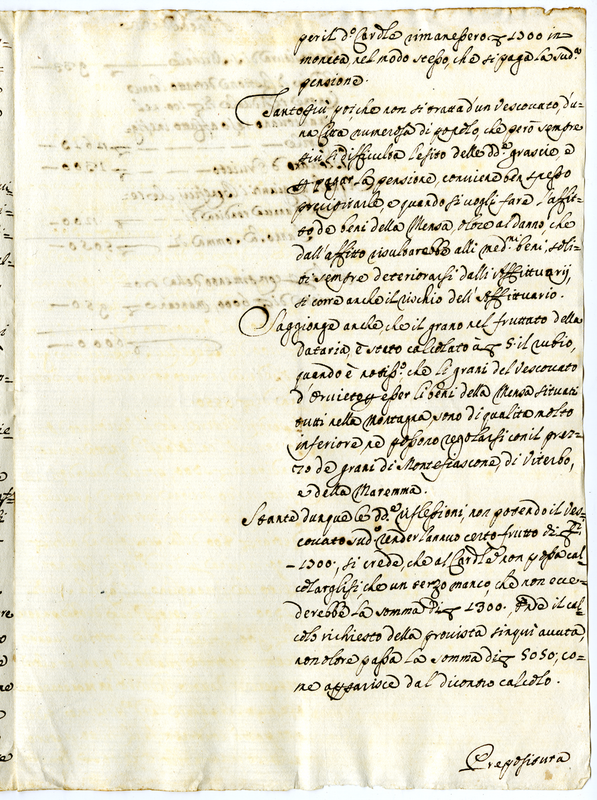 per il d.º Cardle rimanessero 1300 in
moneta nel modo stesso, che si paga la sud.ª
pensione.
Tanto più poiche non si tratta d'un Vescovato, d'u-
na Città numerosa di popolo, che però sempre
più si difficulta l'esito delle dd.e grascie e
p pagar la pensione, conviene ben spesso
precipitarle e quando si vogli fare l'affit-
to de beni della Mensa, oltre al danno, che
dall'affitto risultarebbe alli med.mi beni, soli-
ti sempre deteriorarsi dalli Affittuarij,
si corre anche il rischio dell'Affittuario.
S'aggionge anche che il grano nel fruttato della
dataria, è stato calcolato à 5 il rubio,
quando è notiss.º che li grani del Vescovato
d'Orvieto p esser li beni della Mensa situati
tutti nella Montagna, sono di qualità molto
inferiore, ne possono regolarsi con il prez-
zo de grani di Montefiascone, di Viterbo,
e della Maremma.
Stante dunque le dd.e riflessioni, non potendo il Ves-
covato sud.º render l'annuo certo frutto di
-1300, si crede, che al Cardle non possa cal-
colarglisi, che un terzo manco, che non ecce-
derebbe la somma di 1300. Onde il cal-
colo richiesto della provista sin qui avuta,
non oltre passa la somma di 5050, co-
me apparisce dal dicontro calcolo.
Prepositura